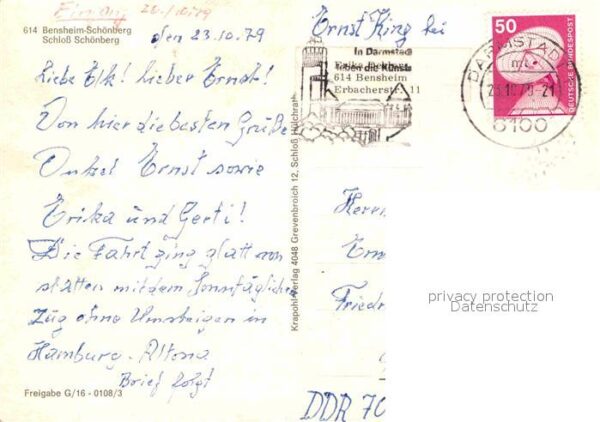 Eingang 26./10.79
614 Bensheim-Schönberg
Schloß Schönberg
den 23.10.79
Liebe Elk! lieber Ernst!
Von hier die besten Grüße
Onkel Ernst sowie
Erika und Gerti!
Die Fahrt ging glatt von
statten mit dem Sonntäglichen
Zug ohne Umsteigen in
Hamburg-Altona
Brief folgt
Freigabe G/16 - 0108/3
Krapohl-Verlag 4048 Grevenbroich 12, Schloß Hülchrath
Ernst King bei
In Darmstadt
leben die Künste
614 Bensheim
Erbacherstr. 11
50
DEUTSCHE BUNDESPOST
DARMSTADT
mt
23.10.79-21
6100
Herrn
Ern
Friedr
DDR 70
privacy protection
Datenschutz